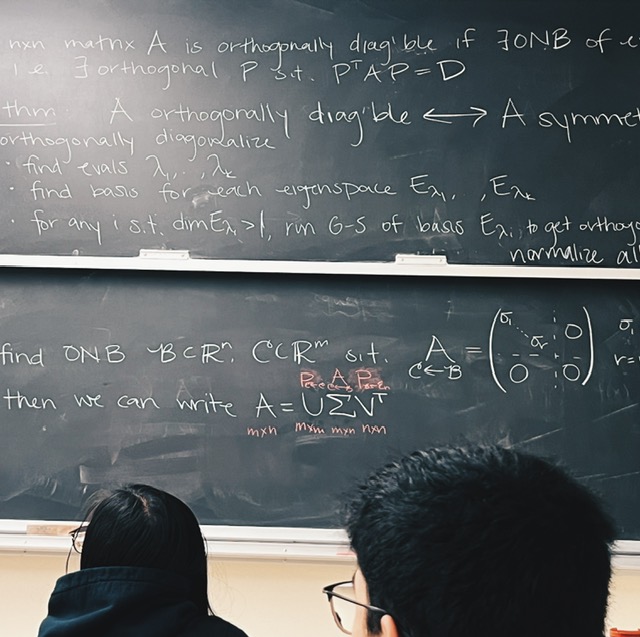 nxn matrix A is orthogonally diag'ble if ∃ONB of e
i.e. ∃ orthogonal P s.t. PᵀAP = D
thm A orthogonally diag'ble ⟷ A symmet
orthogonally diagonalize
· find evals λ₁,..,λₖ
· find basis for each eigenspace E_λ₁, ,E_λₖ
· for any i s.t. dimE_λᵢ>1, run G-S of basis E_λᵢ, to get orthogo
normalize all
find ONB B⊂ℝⁿ, C⊂ℝᵐ s.t. A C←B = (σ₁ ⋱ σᵣ 0 0 0) σ₁
r=
A
then we can write A = UΣVᵀ
mxn mxm mxn nxn